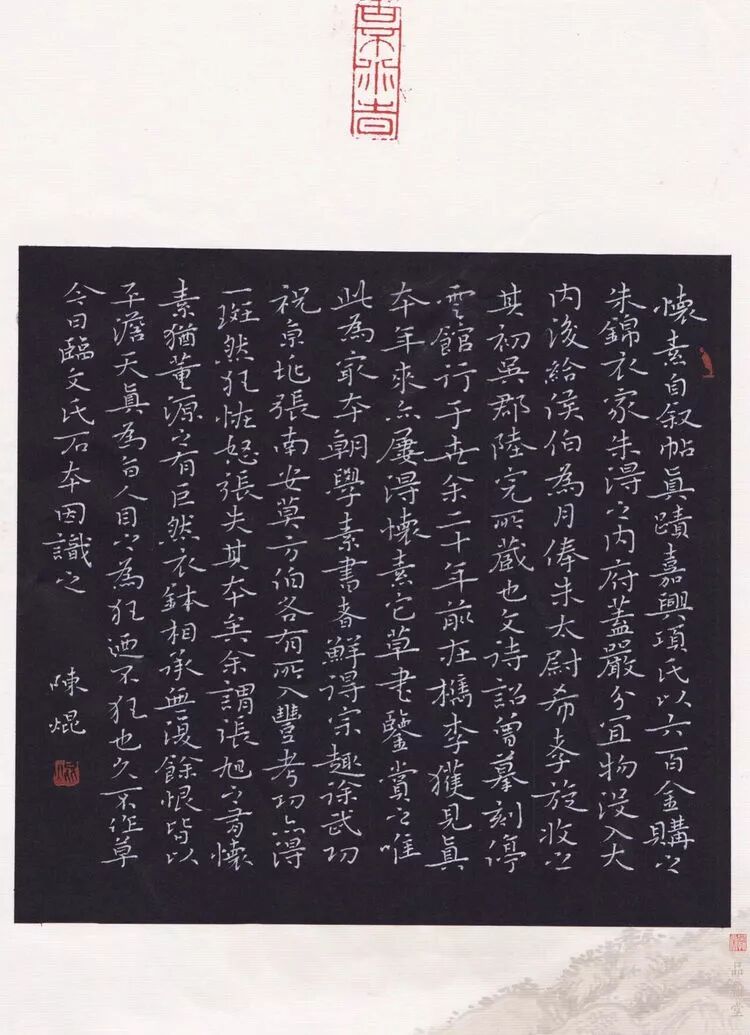 懷素自叙帖眞蹟嘉興項氏以六百金購之
朱錦衣家朱得之内府蓋嚴分宜物没入大
内後給侯伯為月俸朱太尉希孝旋收之
其初吳郡陸完所藏也文待詔曾摹刻停
雲館行于世余二十年前在檇李獲見眞
本年來亦屢得懷素它草書鑒賞之唯
此為最本朝學素書者鮮得宗趣徐武功
祝京兆張南安莫方伯各有所入豐考功亦得
一斑然狂怪怒張失其本矣余謂張旭之有懷
素猶董源之有巨然衣鉢相承無復餘恨皆以
平澹天眞為旨人目之為狂迺不狂也久不作草
今日臨文氏石本因識之
陳焜